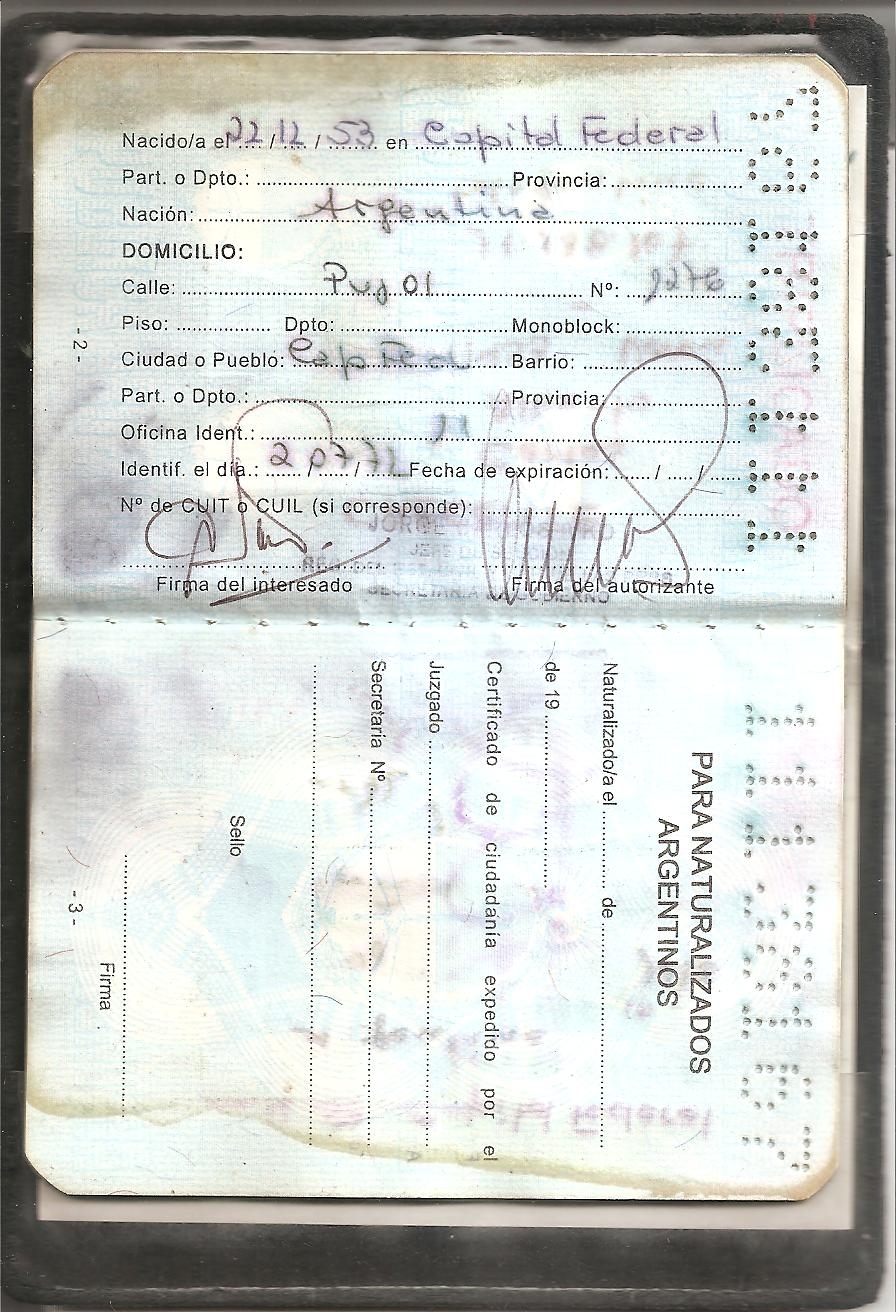 Nacido/a el 22 / 12 / 53 en Capital Federal
Part. o Dpto.: Provincia:
Nación: Argentina
DOMICILIO:
Calle: Pujol Nº:
Piso: Dpto: Monoblock:
Ciudad o Pueblo: Cap Fed Barrio:
Part. o Dpto.: Provincia:
Oficina Ident.:
Identif. el día.: Fecha de expiración: / /
Nº de CUIT o CUIL (si corresponde):
JORGE
SECRETARIA GOBIERNO
Firma del interesado Firma del autorizante
- 2 -
PARA NATURALIZADOS
ARGENTINOS
Naturalizado/a el de
de 19
Certificado de ciudadanía expedido por el
Juzgado
Secretaria Nº
Sello
Firma
- 3 -